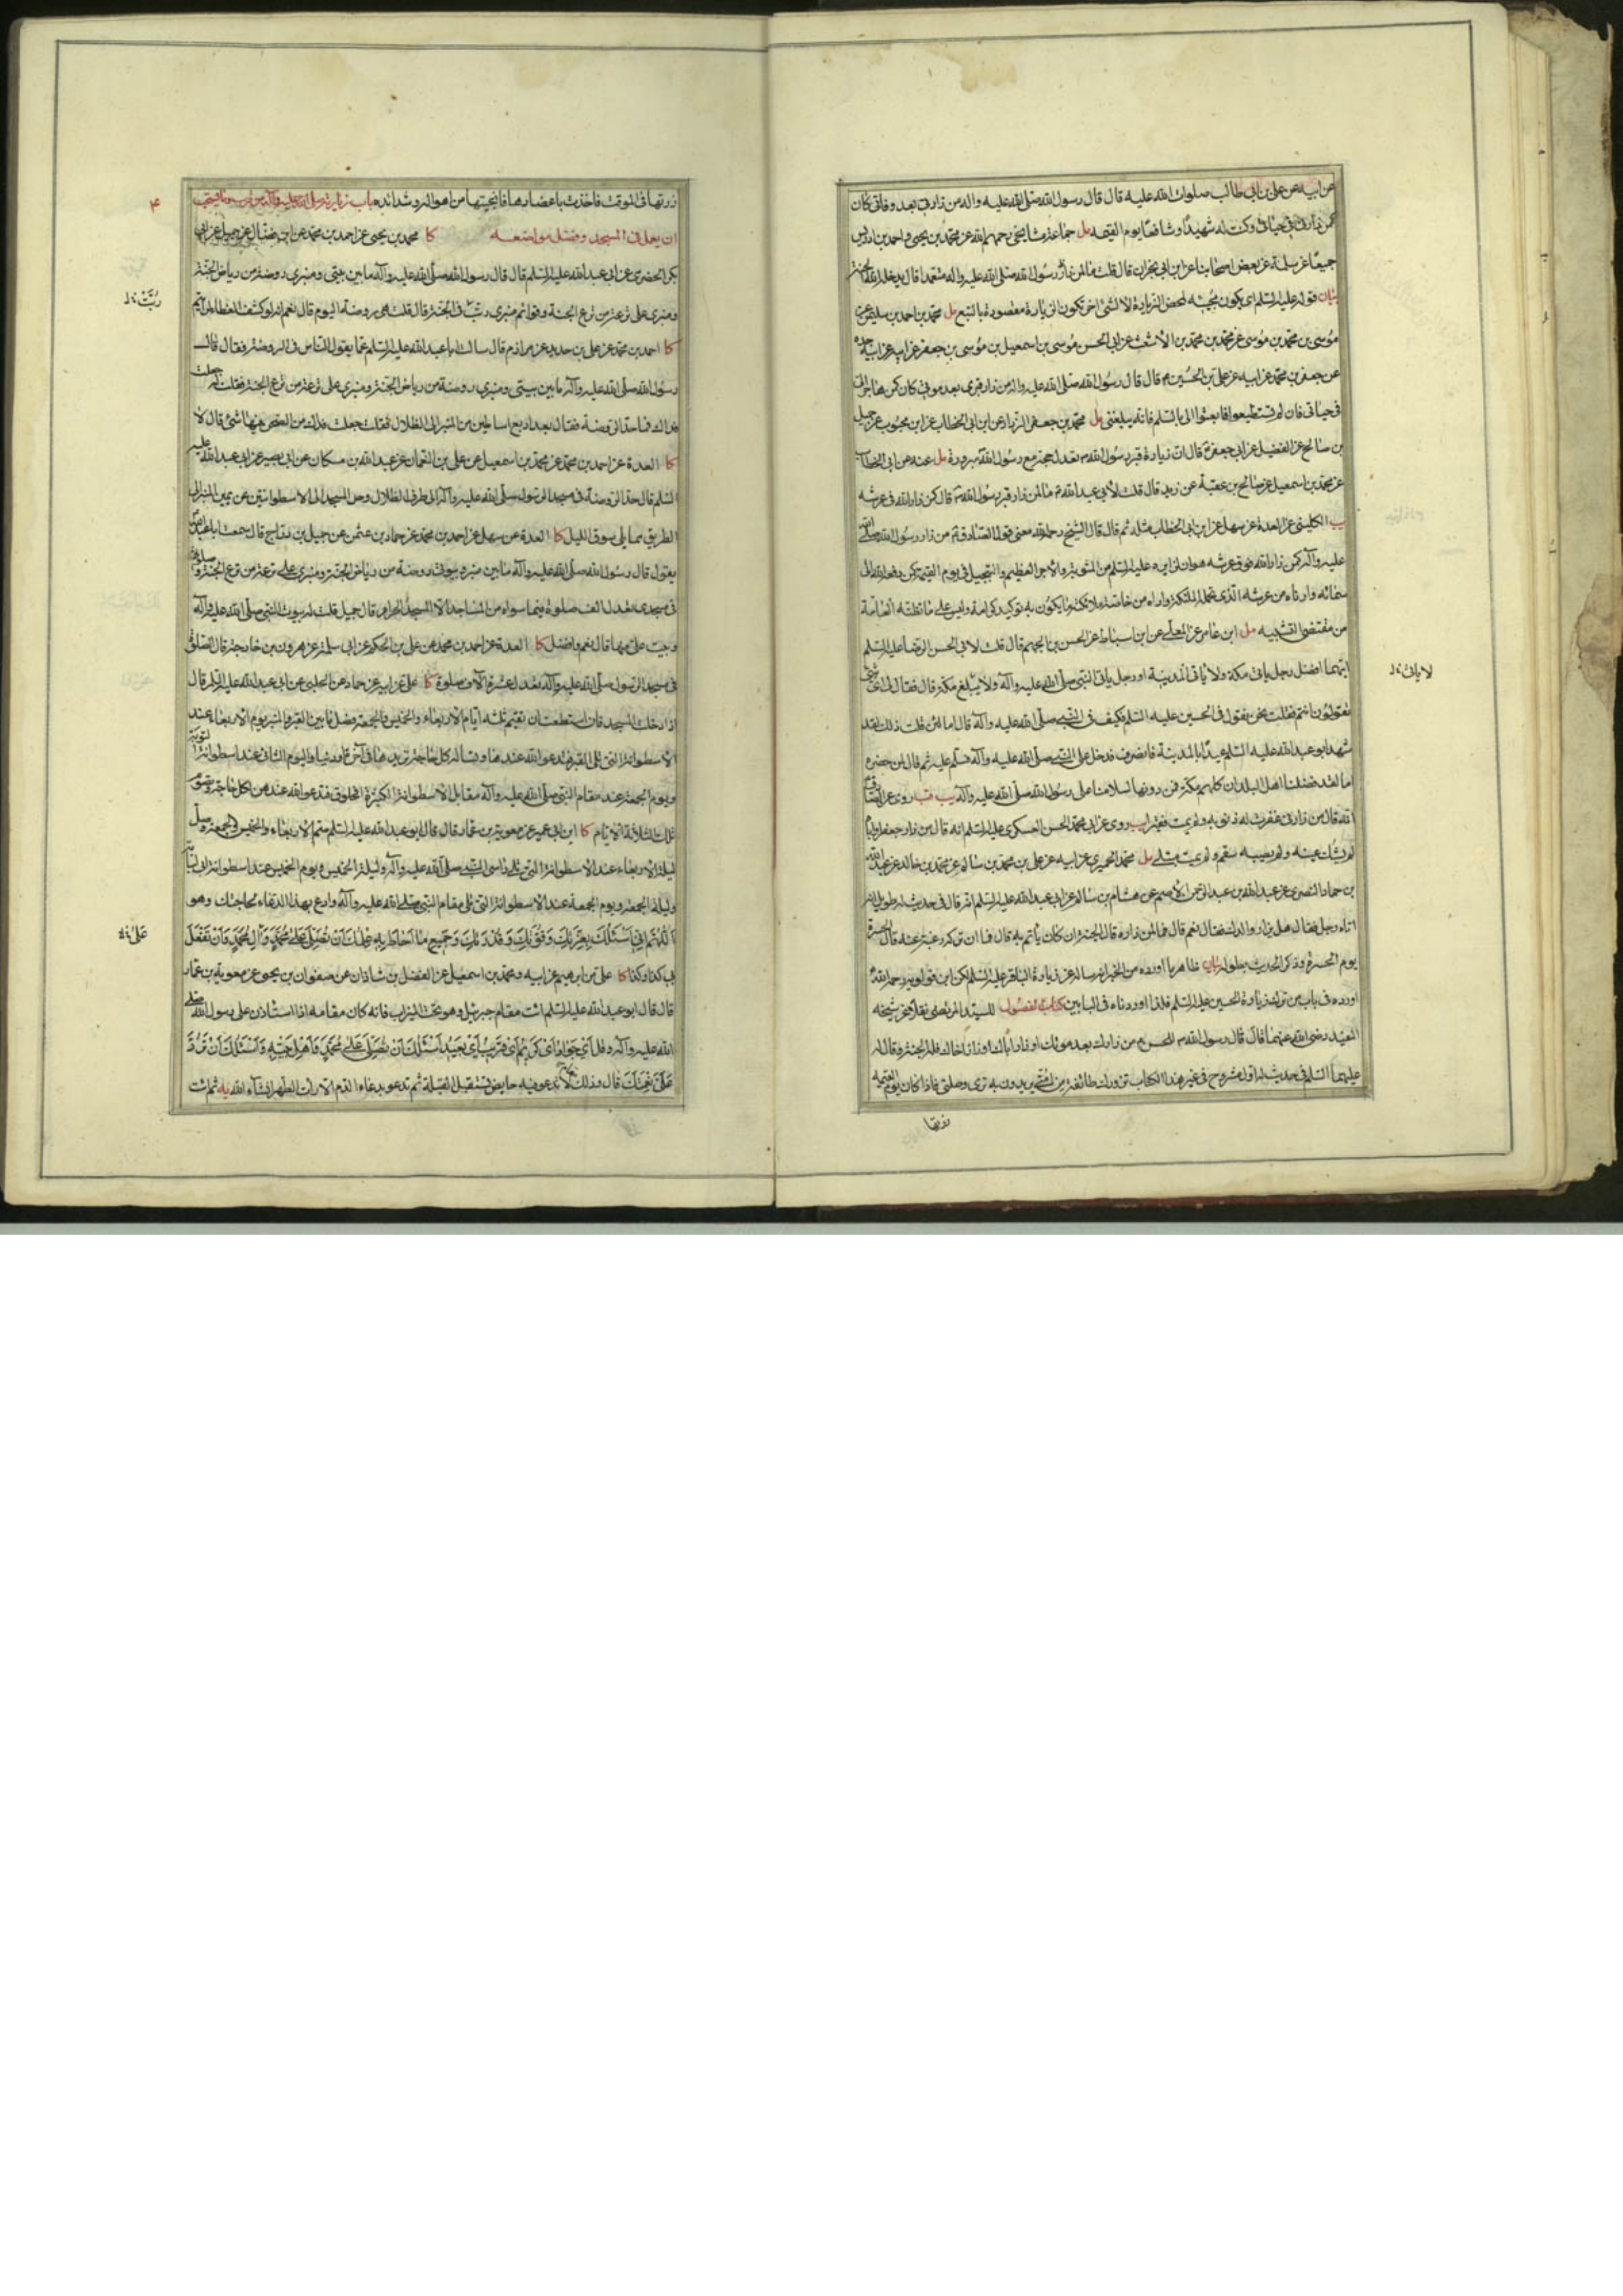 عن ابيه عن علي بن ابي طالب صلوات الله عليه قال قال رسول الله صلى الله عليه واله من زارني بعد وفاتي كان
كمن زارني في حياتي وكنت له شهيدًا وشافعًا يوم القيمه مل جماعة مشايخي رحمهم الله عن محمد بن يحيى واحمد بن ادريس
جميعًا عن سلمة عن بعض اصحابنا عن ابن ابي نجران قال قلت ما لمن زار رسول الله صلى الله عليه واله متعمدا قال يدخله الله الجنة
بيان قوله عليه السلم اي يكون مجيئه لمحض الزيارة لا لشئ اخر تكون الزيارة مقصودة بالتبع مل محمد بن احمد بن سليمن عن
موسى بن محمد بن موسى عن محمد بن محمد بن الاشعث عن ابي الحسن موسى بن اسمعيل بن موسى بن جعفر عن ابيه عن ابيه عن جده
عن جعفر بن محمد عن ابيه عن علي بن الحسين ع قال قال رسول الله صلى الله عليه واله من زار قبري بعد موتي كان كمن هاجر الي
في حياتي فان لم تستطيعوا فابعثوا الي بالسلم فانه يبلغني مل محمد بن جعفر الرزاز عن ابن ابي الخطاب عن ابن محبوب عن جميل
بن صالح عن الفضيل عن ابي جعفر ع قال ان زيارة قبر رسول الله ص تعدل حجة مع رسول الله ص مبرورة مل عنه عن ابن ابي الخطاب
عن محمد بن اسمعيل عن صالح بن عقبة عن زيد قال قلت لابي عبد الله ع ما لمن زار قبر رسول الله ص قال كمن زار الله في عرشه
يب الكليني عن العدة عن سهل عن ابن ابي الخطاب مثله ثم قال قال الشيخ رحمه الله معنى قول الصادق ع من زار رسول الله صلى الله
عليه وآله كمن زار الله فوق عرشه هو ان لزايره عليه السلم من المثوبة والاجر العظيم والتبجيل في يوم القيمة كمن رفعه الله الى
سمائه وادناه من عرشه الذي تحمله الملئكة واراه من خاصة ملائكته ما يكون به توكيد كرامته وليس على ما تظنه العامة
من مقتضى التشبيه مل ابن عامر عن المعلى عن ابن اسباط عن الحسن بن الجهم قال قلت لابي الحسن الرضا عليه السلم
ايهما افضل رجل ياتي مكة ولا ياتي المدينة او رجل ياتي النبي صلى الله عليه وآله ولا يبلغ مكة قال فقال لي اي شئ
تقولون انتم فقلت نحن نقول في الحسين عليه السلم فكيف في النبي صلى الله عليه وآله قال اما لئن قلت ذلك لقد
شهد ابو عبد الله عليه السلم عيدًا بالمدينة فانصرف فدخل على النبي صلى الله عليه وآله فسلم عليه ثم قال لمن حضره
اما لقد فضلنا اهل البلدان كلهم مكة فمن دونها لسلامنا على رسول الله صلى الله عليه وآله يب قب روي عن الصادق
انه قال من زارني غفرت له ذنوبه ولم يمت فقيرا يب روي عن ابي محمد الحسن العسكري عليه السلم انه قال من زار جعفرا واباه
لم يشك عينه ولم يصبه سقم ولم يمت مبتلى مل محمد الحميري عن ابيه عن علي بن محمد بن سالم عن محمد بن خالد عن عبد الله
بن حماد البصري عن عبد الله بن عبد الرحمن الاصم عن هشام بن سالم عن ابي عبد الله عليه السلم انه قال في حديث له طويل انه
اتاه رجل فقال هل يزار والدك فقال نعم قال فما لمن زاره قال الجنة ان كان ياتم به قال فما لمن تركه رغبة عنه قال الحسرة
يوم الحسرة وذكر الحديث بطوله بيان ظاهر ما اورده من الخبر انه ساله عن زيارة الباقر عليه السلم لكن ابن قولويه رحمه الله
اورده في باب من ترك زيارة الحسين عليه السلم فلذا اوردناه في البابين كتاب الفصول للسيد المرتضى نقلا عن شيخه
المفيد رضي الله عنهما قال قال رسول الله ص للحسن ع من زارك بعد موتك او زار اباك او زار اخاك فله الجنة وقال له
عليهما السلم في حديث له اوله مشروح في غير هذا الكتاب تزورك طائفة من امتي يريدون به بري وصلتي فاذا كان يوم القيمة
زرتها
لا ياتي ل
زرتها في الموقف فاخذت باعضادها فانجيتها من اهواله وشدائده باب زيارته صلى الله عليه وآله من قريب وما يستحب
ان يعمل في المسجد وفضل مواضعه كا محمد بن يحيى عن احمد بن محمد عن ابن فضال عن جميل عن ابي
بكر الحضرمي عن ابي عبد الله عليه السلم قال قال رسول الله صلى الله عليه وآله ما بين بيتي ومنبري روضة من رياض الجنة
ومنبري على ترعة من ترع الجنة وقوائم منبري ربت في الجنة قال قلت هي روضة اليوم قال نعم انه لو كشف الغطاء لرايتم
كا احمد بن محمد عن علي بن حديد عن مرازم قال سالت ابا عبد الله عليه السلم عما يقول الناس في الروضة فقال قال
رسول الله صلى الله عليه وآله ما بين بيتي ومنبري روضة من رياض الجنة ومنبري على ترعة من ترع الجنة فقلت له جعلت
فداك فما حد الروضة فقال بعد اربع اساطين من المنبر الى الظلال فقلت جعلت فداك من الصحن فيها شئ قال لا
كا العدة عن احمد بن محمد عن محمد بن اسمعيل عن علي بن النعمان عن عبد الله بن مسكان عن ابي بصير عن ابي عبد الله عليه
السلم قال حد الروضة في مسجد الرسول صلى الله عليه وآله الى طرف الظلال وحد المسجد الى الاسطوانتين عن يمين المنبر الى
الطريق مما يلي سوق الليل كا العدة عن سهل عن احمد بن محمد عن حماد بن عثمن عن جميل بن دراج قال سمعت ابا عبد الله
يقول قال رسول الله صلى الله عليه وآله ما بين منبري وبيوتي روضة من رياض الجنة ومنبري على ترعة من ترع الجنة وصلوة
في مسجدي تعدل الف صلوة فيما سواه من المساجد الا المسجد الحرام قال جميل قلت له بيوت النبي صلى الله عليه وآله
وبيت علي منها قال نعم وافضل كا العدة عن احمد بن محمد عن علي بن الحكم عن ابي سلمة عن هرون بن خارجة قال الصلوة
في مسجد الرسول صلى الله عليه وآله تعدل عشرة آلاف صلوة كا علي عن ابيه عن حماد عن الحلبي عن ابي عبد الله عليه السلم قال
اذا دخلت المسجد فان استطعت ان تقيم ثلثه ايام الاربعاء والخميس والجمعة فصل ما بين القبر والمنبر يوم الاربعاء عند
الاسطوانة التي تلي القبر فتدعو الله عندها وتساله كل حاجة تريدها في آخرة او دنيا واليوم الثاني عند اسطوانة التوبة
ويوم الجمعة عند مقام النبي صلى الله عليه وآله مقابل الاسطوانة الكثيرة الخلوق فتدعو الله عندهن لكل حاجة وتصوم
تلك الثلاثة الايام كا ابن ابي عمير عن معوية بن عمار قال قال ابو عبد الله عليه السلم صم الاربعاء والخميس والجمعة وصل
ليلة الاربعاء عند الاسطوانة التي تلي راس النبي صلى الله عليه وآله وليلة الخميس ويوم الخميس عند اسطوانة ابي لبابة
وليلة الجمعة ويوم الجمعة عند الاسطوانة التي تلي مقام النبي صلى الله عليه وآله وادع بهذا الدعاء لحاجتك وهو
اَللّهُمَّ اِنّي اَسْئَلُكَ بِعِزَّتِكَ وَقُوَّتِكَ وَقُدْرَتِكَ وَجَميعِ مٰا اَحٰاطَ بِهِ عِلْمُكَ اَنْ تُصَلِّيَ عَلى مُحَمَّدٍ وَآلِ مُحَمَّدٍ وَاَنْ تَفْعَلَ
بي كذا وكذا كا علي بن ابرهيم عن ابيه ومحمد بن اسمعيل عن الفضل بن شاذان عن صفوان بن يحيى عن معوية بن عمار
قال قال ابو عبد الله عليه السلم ائت مقام جبرئيل وهو تحت الميزاب فانه كان مقامه اذا استاذن على رسول الله صلى
الله عليه وآله وقل اَيْ جَوٰادُ اَيْ كَريمُ اَيْ قَريبُ اَيْ بَعيدُ اَسْئَلُكَ اَنْ تُصَلِّيَ عَلى مُحَمَّدٍ وَاَهْلِ بَيْتِهِ وَاَسْئَلُكَ اَنْ تَرُدَّ
عَلَيَّ نِعْمَتَكَ قال وذلك مقام لا تدعو فيه حايض تستقبل القبلة ثم تدعو بدعاء الدم الا رات الطهر انشاء الله يه ثم ائت
رُبَّتْ ل
عَلىٰ